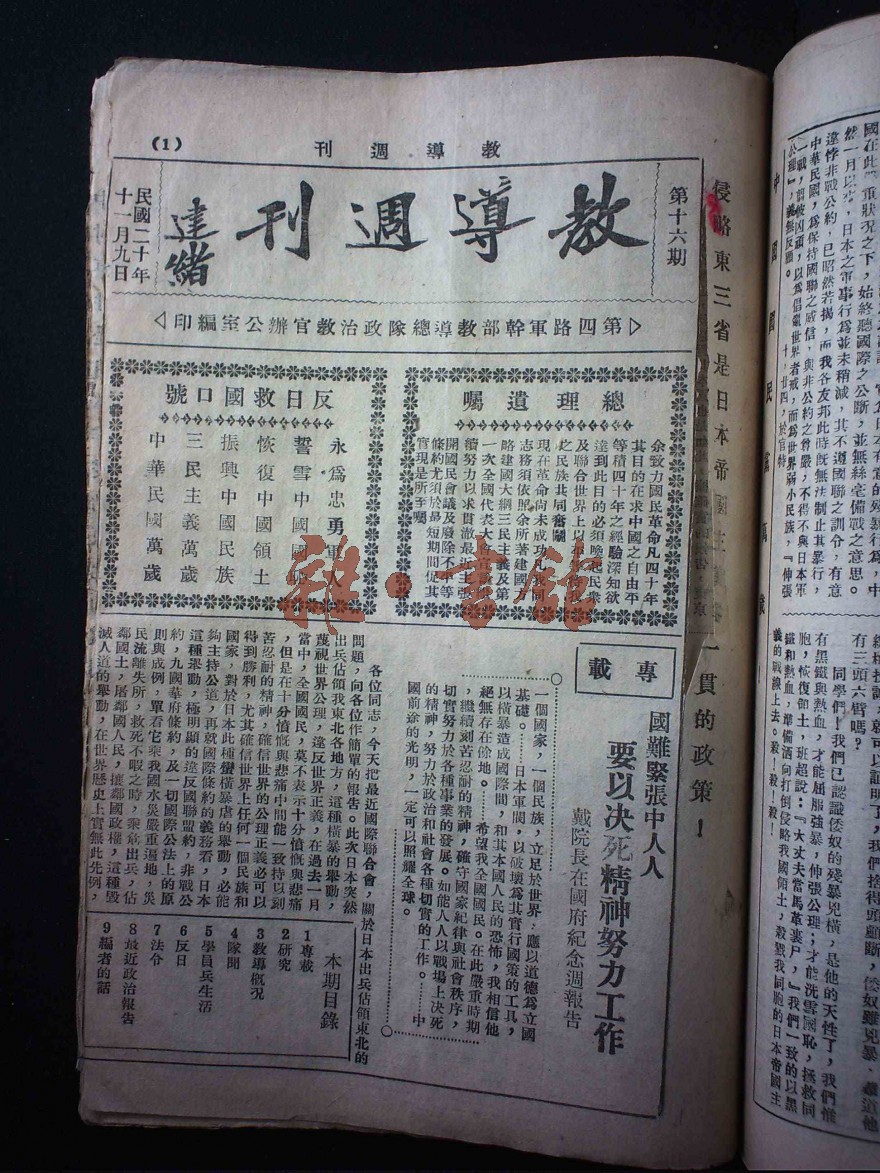 教導週刊
(1)
第十六期
教導週刊
達緒
民國二十年
十一月九日
第四路軍幹部教導總隊政治教官辦公室編印
總理遺囑
余致力國民革命凡四十年
其目的在求中國之自由平
等積四十年之經驗深知欲
達到此目的必須喚起民衆
及聯合世界上以平等待我
之民族共同奮鬭
現在革命尚未成功凡我同
志務須依照余所著建國方
略建國大綱三民主義及第
一次全國代表大會宣言繼
續努力以求貫澈最近主張
開國民會議及廢除不平等
條約尤須於最短期間促其
實現是所至囑
反日救國口號
永爲忠勇軍人
誓雪中國國恥
恢復中國領土
振興中國民族
三民主義萬歲
中華民國萬歲
專載
國難緊張中人人
要以決死精神努力工作
戴院長在國府紀念週報告
一個國家，一個民族，立足於世界，應以道德爲立國
基礎。……日本軍閥，以破壞爲其實行國策的工具，
以橫暴造成國際間，和其本國人民的恐怖，我相信他
絕無存在餘地。……希望我全國國民。在此嚴重時期
，繼續刻苦忍耐的精神，確守國家紀律與社會秩序，
切實努力於各種事業的發展。如能人人以戰場上決死
的精神，努力於政治和社會各種切實的工作。……中
國前途的光明，一定可以照耀全球。
各位同志，今天把最近國際聯合會，關於日本出兵佔領東北的
問題，向各位作簡單的報告。此次日本突然
出兵佔領我東北各地方，這種橫暴的舉動，
蔑視世界公理，違反世界正義，在過去一月
當中，全國國民，莫不表示十分憤慨與悲痛
，但是在十分憤慨與悲痛中間能一致持以刻
苦忍耐的精神，確信世界的公理正義必可以
得到勝利，尤其確信世界上任何一個民族和
國家，對於日本此種蠻橫暴虐的舉動，必能
夠主持公道，再就國際條約的義務看，日本
這種舉動，極明顯的違反國聯盟約，非戰公
約，九國華府條約，及一切國際公法上的原
則與成例，單看它乘我國水災嚴重遍地，災
民流離失所，救死不暇之時，乘危出兵，佔
鄰國土，屠鄰國人民，攘鄰國政權，這種毀
滅人道的舉動，在世界歷史上實無此先例，
本期目錄
1專載
2研究
3教導概况
4隊聞
5學員兵生活
6反日
7法令
8最近政治報告
9編者的話
侵略東三省是日本帝國主義
一貫的政策！
雜·書館
國在此嚴重狀況之下，始終聽國際之公斷，並無絲毫備戰之意思。
然一月以來，日本之軍事行爲並未稍減，其不遵國聯之訓令，有意
違悖非戰公約，已昭然若揭，而我各友邦此時既無法制止其暴行，
中華民國，爲保持國聯之威信，與非公約之尊嚴，不得不與日本軍
公理』，義無反顧。
中國國民黨萬歲！
有三頭六臂嗎？
同學們！我們已認識倭奴的殘暴兇橫，是他的天性了，我們惟
有黑鐵與熱血，才能屈服強暴，伸張公理；才能洗雪國恥，拯救同
胞，恢復領土，班超說：『大丈夫當馬革裹尸，』我們一致的以黑
鐵和熱血，準備洒向打倒侵略我國領土，殺戮我同胞的日本帝國主
義的戰線上去。殺！殺！殺！